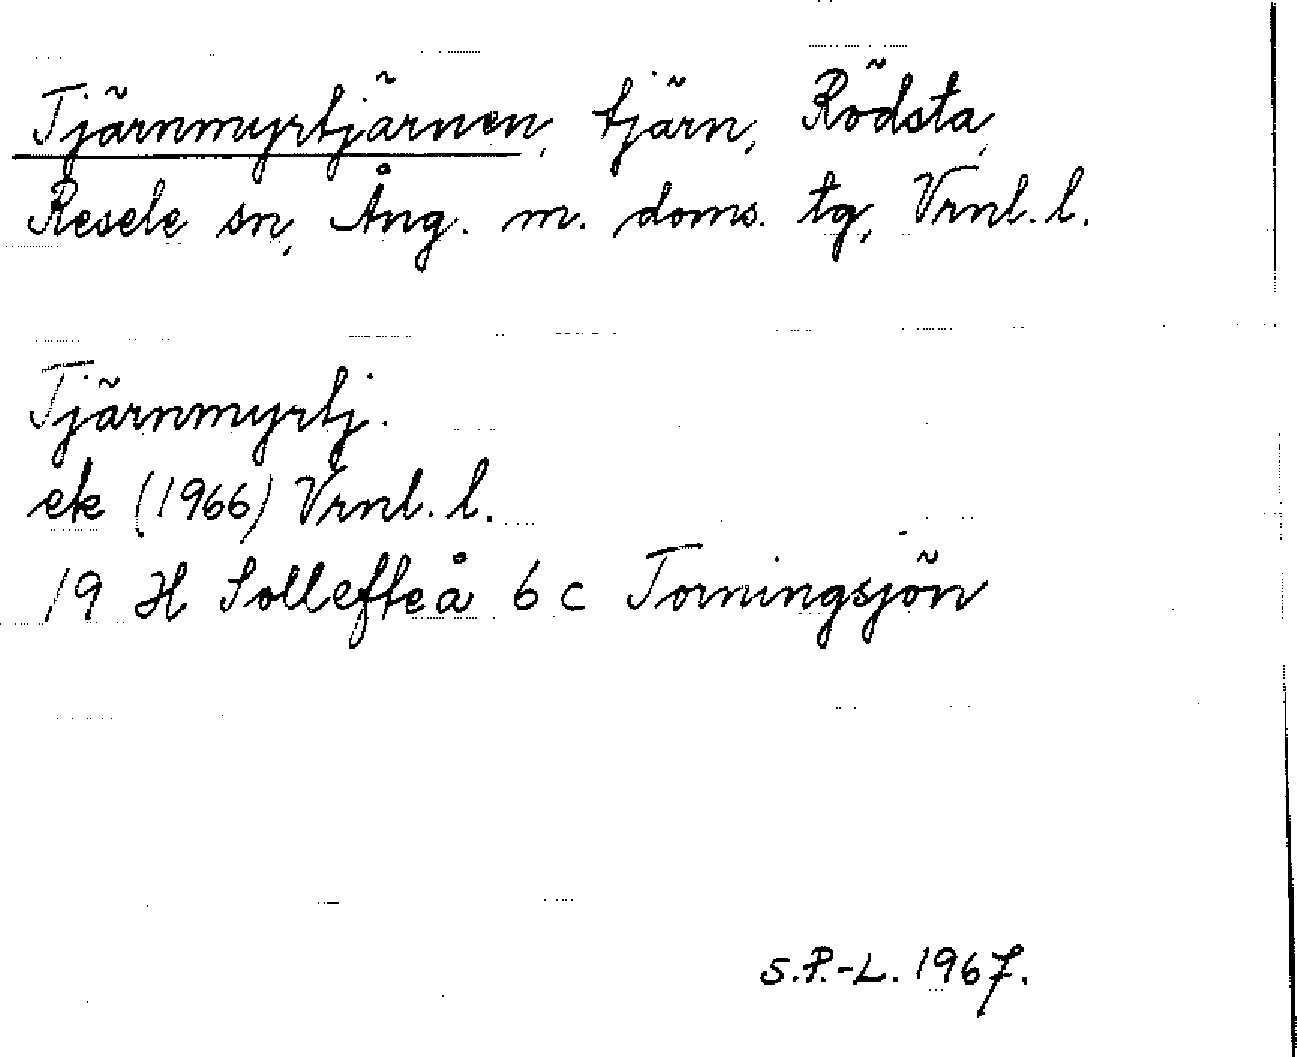 Tjärnmyrtjärnen, tjärn, Rödsta,
Resele sn, Ång. m. doms. tg, Vrnl. l.
Tjärnmyrtj.
ek (1966) Vrnl. l.
19 H Sollefteå 6 c Torningsjön
S.P.-L. 1967.